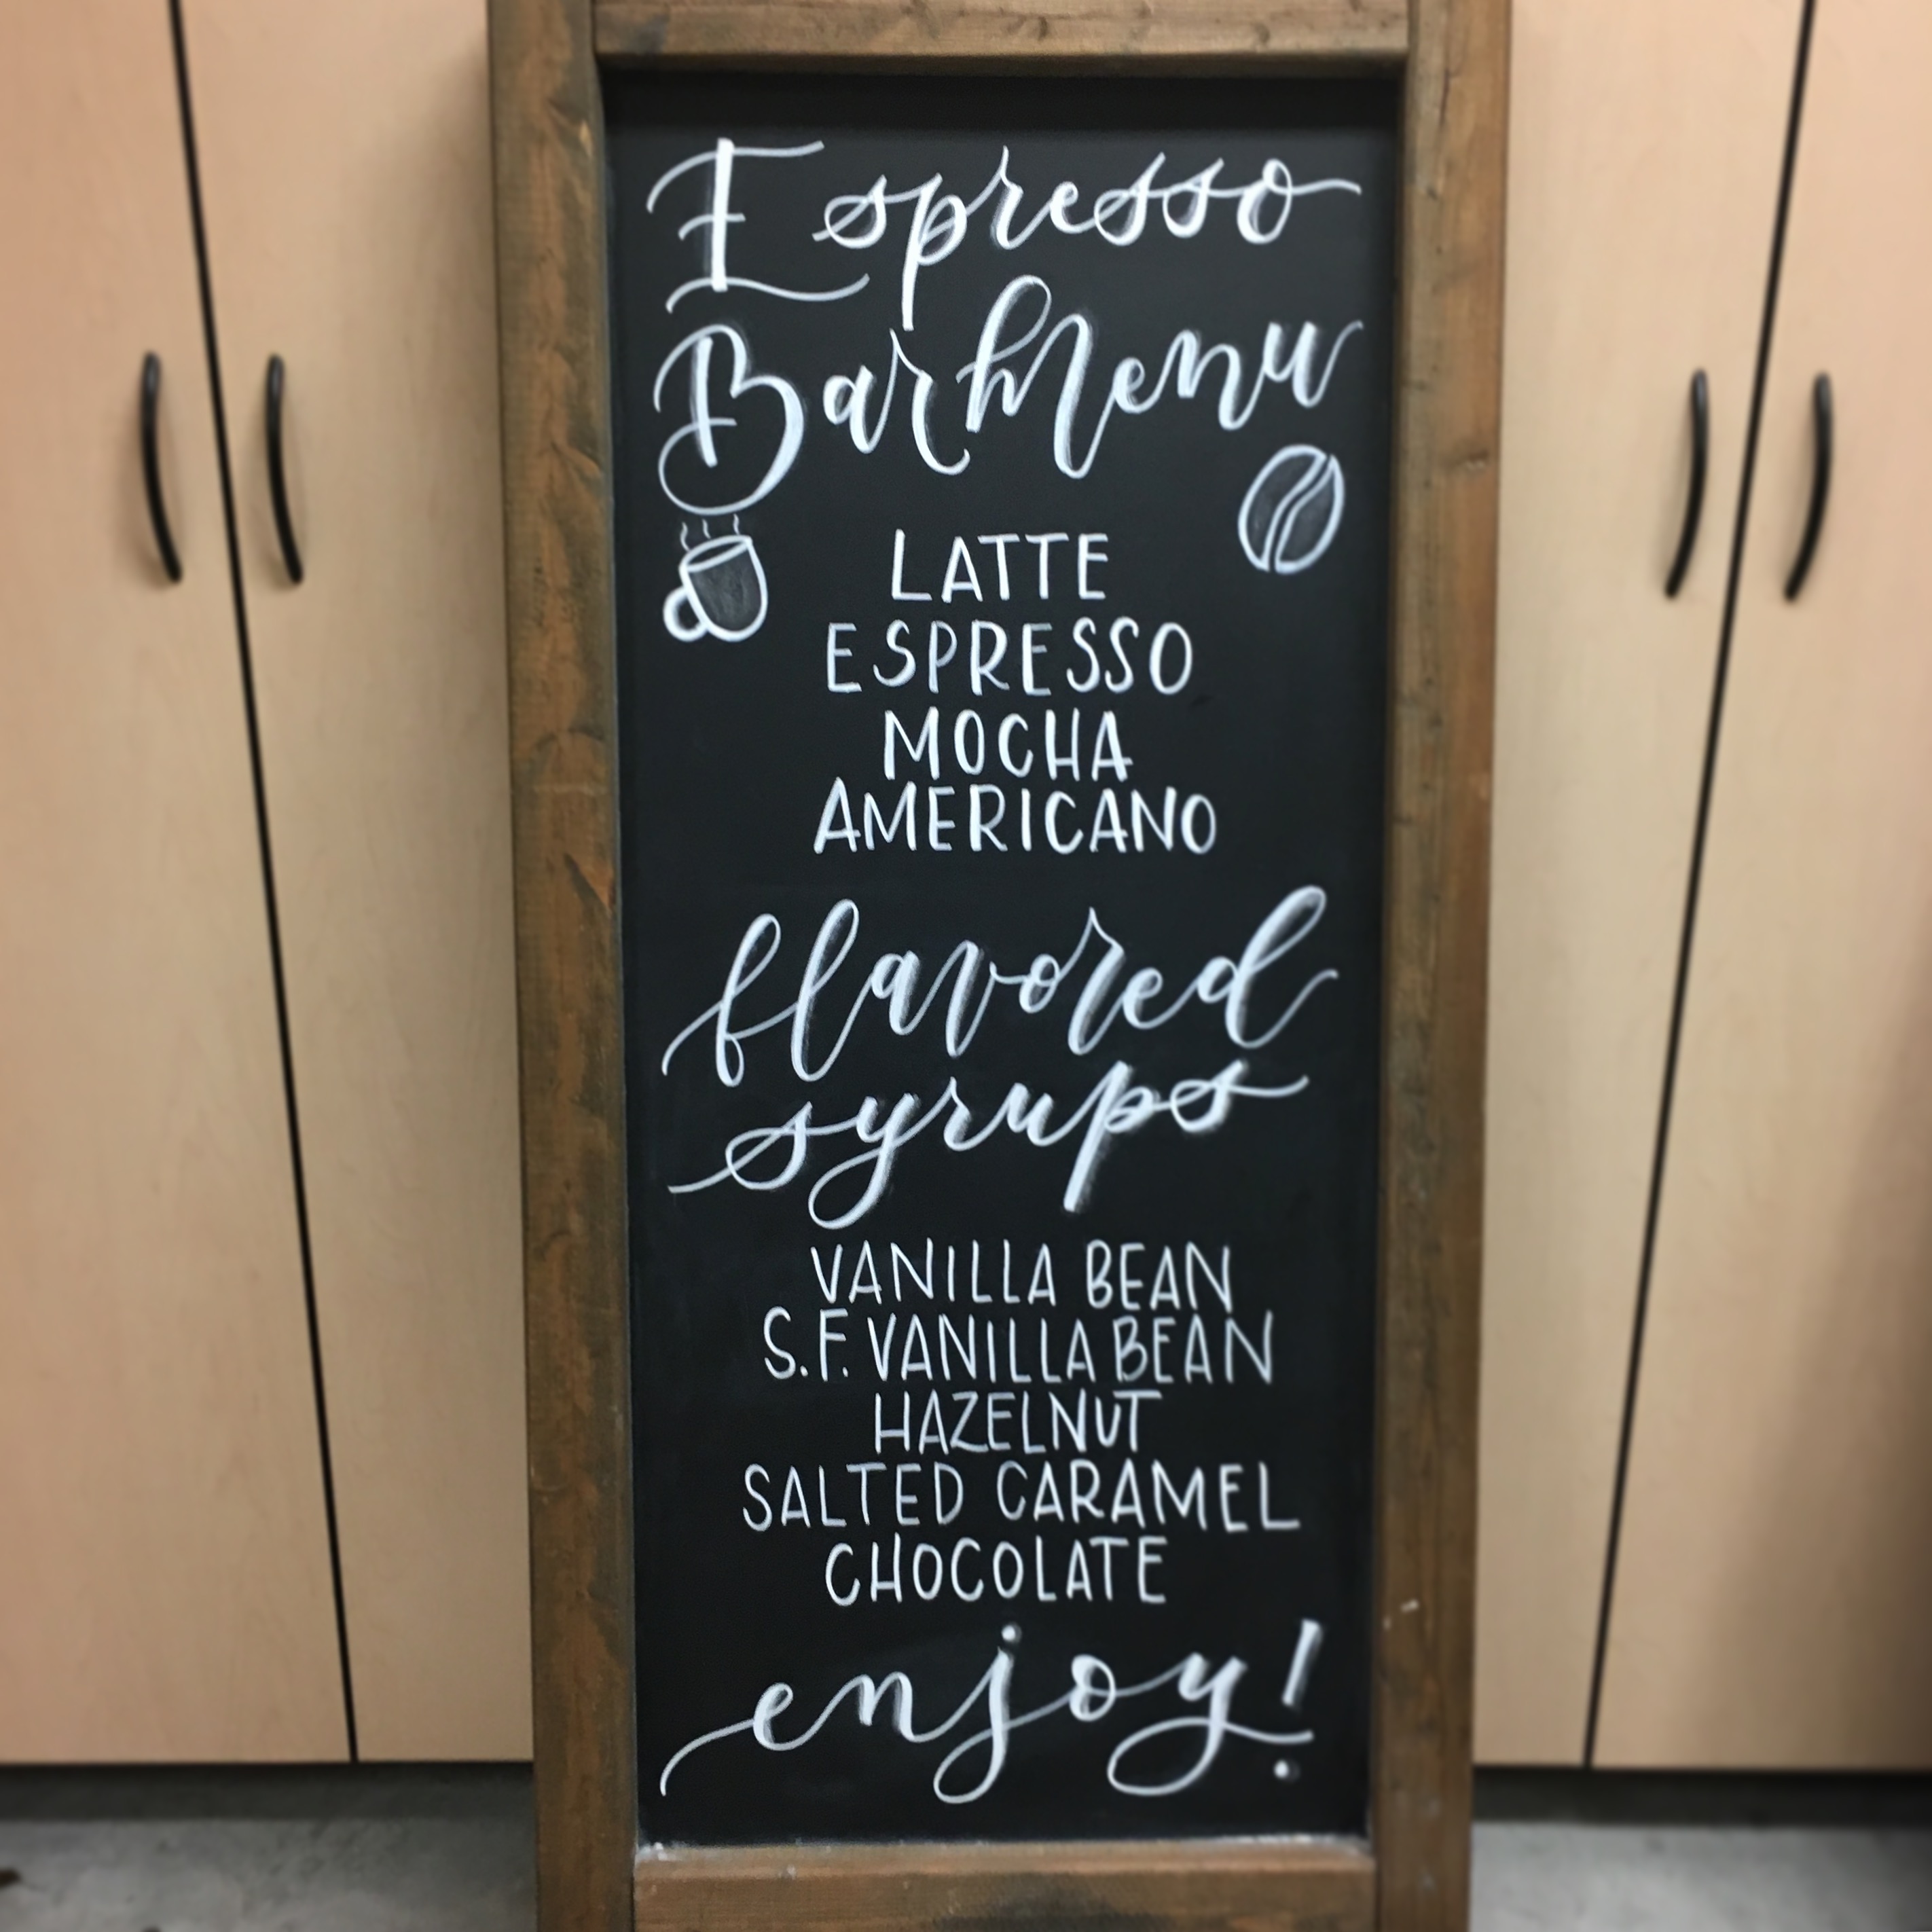 Espresso
Bar Menu
LATTE
ESPRESSO
MOCHA
AMERICANO
flavored
syrups
VANILLA BEAN
S.F. VANILLA BEAN
HAZELNUT
SALTED CARAMEL
CHOCOLATE
enjoy!